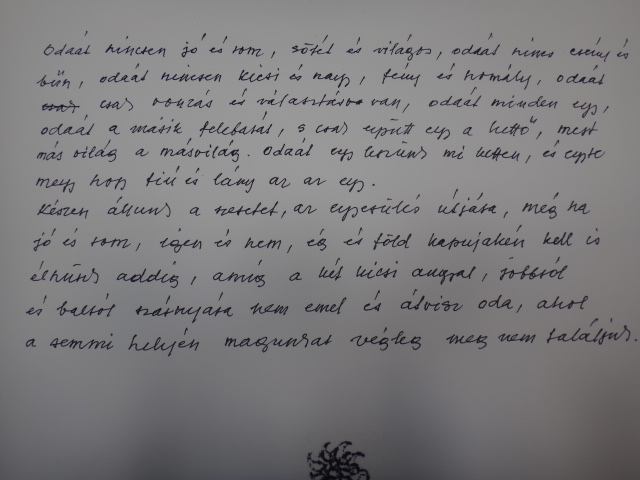 Odaát nincsen jó és rom, sötét és világos, odaát nincs erény és
bűn, odaát nincsen kicsi és nagy, fény és homály, odaát
csak vonzás és választás van, odaát minden egy,
odaát a másik feled, s csak együtt egy a kettő, mert
más világ a másvilág. Odaát egy leszünk mi ketten, és egyre
megy hogy fiú és lány az az egy.
Készen állunk a szeretet, az egyesülés útjára, még ha
jó és rom, igen és nem, ég és föld kapujaként kell is
élnünk addig, amíg a két kicsi angyal, jobbról
és balról szárnyára nem emel és átvisz oda, ahol
a semmi helyén magunkat végleg meg nem találjuk.